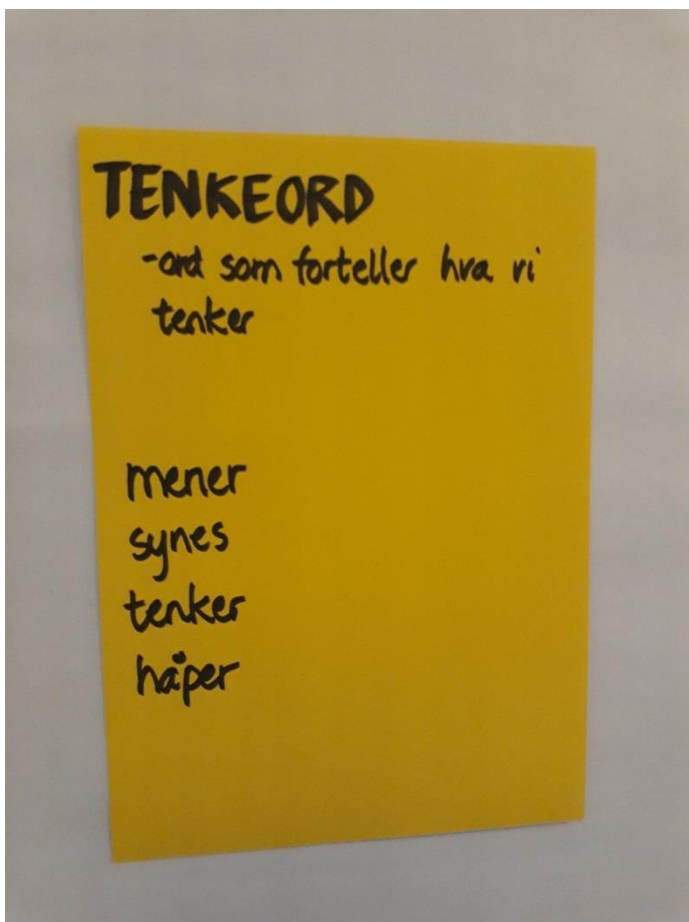 TENKEORD
-ord som forteller hva vi
tenker
mener
synes
tenker
håper